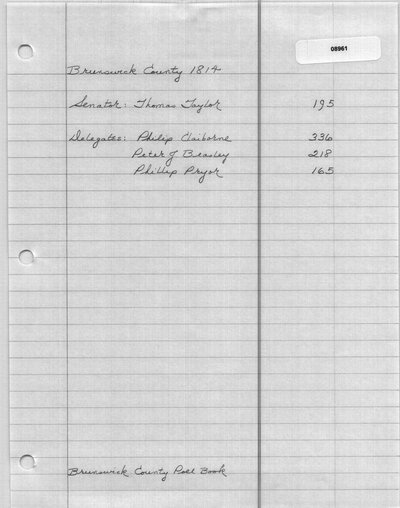 08961
Brunswick County 1814
Senator: Thomas Taylor 195
Delegates: Philip Claiborne 336
Peter J Beasley 218
Phillip Pryor 165
Brunswick County Poll Book